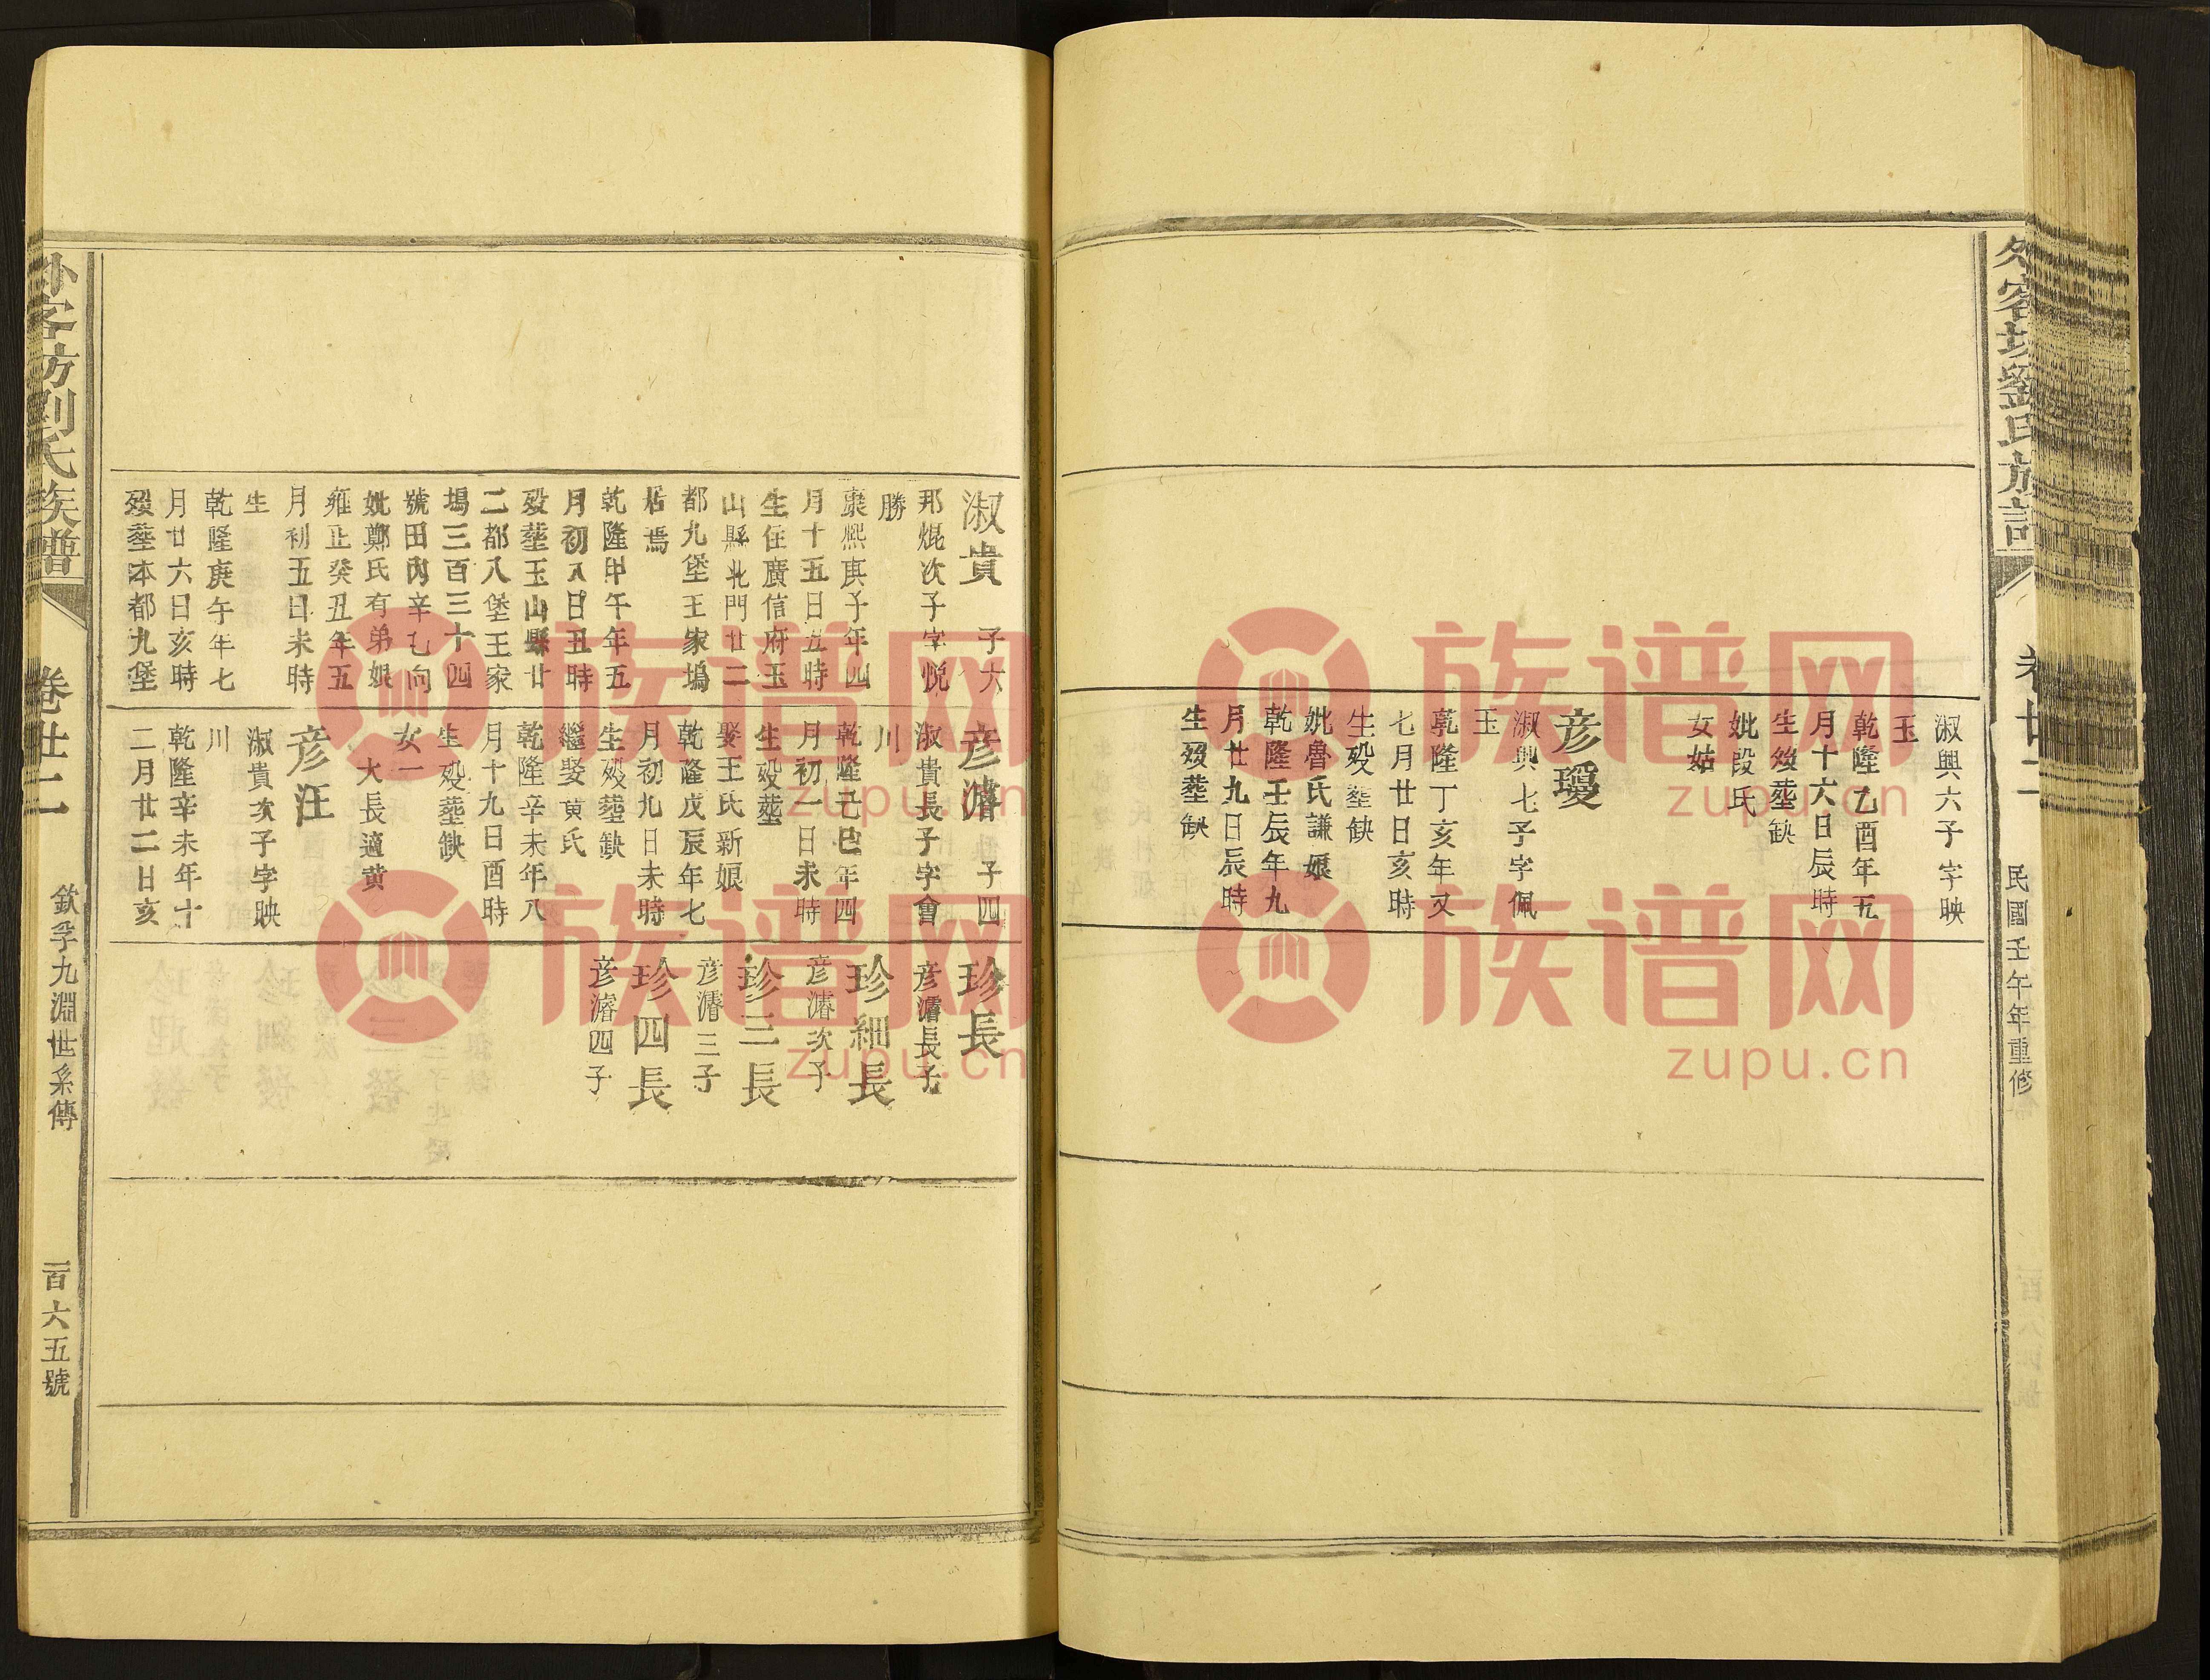 民國壬午年重修
淑興六子字映
玉
乾隆乙酉年五
月十六日辰時
生歿塟缺
妣段氏
女姑
彦瓊
淑興七子字佩
玉
乾隆丁亥年又
七月廿日亥時
生歿塟缺
妣魯氏謙娘
乾隆壬辰年九
月廿九日辰時
生歿塟缺
淑貴 子六
邦焜次子字悅
勝
康熙庚子年四
月十五日丑時
生住廣信府玉
山縣北門廿二
都九堡王家塢
居焉
乾隆甲午年五
月初八日丑時
歿塟玉山縣廿
二都八堡王家
塢三百三十四
號田內辛乙向
妣鄭氏有弟娘
雍正癸丑年五
月初五日未時
生
乾隆庚午年七
月廿六日亥時
歿塟本都九堡
彦濬 子四
淑貴長子字會
川
乾隆己巳年四
月初一日未時
生歿塟
娶王氏新娘
乾隆戊辰年七
月初九日未時
生歿塟缺
繼娶黄氏
乾隆辛未年八
月十九日酉時
生歿塟缺
女一
大長適黄
彦汪
淑貴次子字映
川
乾隆辛未年十
二月廿二日亥
珍長
彦濬長子
珍細長
彦濬次子
珍三長
彦濬三子
珍四長
彦濬四子
外客坊劉氏族譜
卷廿二
欽孚九淵世系傳
一百六五號
族谱网
zupu.cn
族谱网
zupu.cn
族谱网
zupu.cn
族谱网
zupu.cn